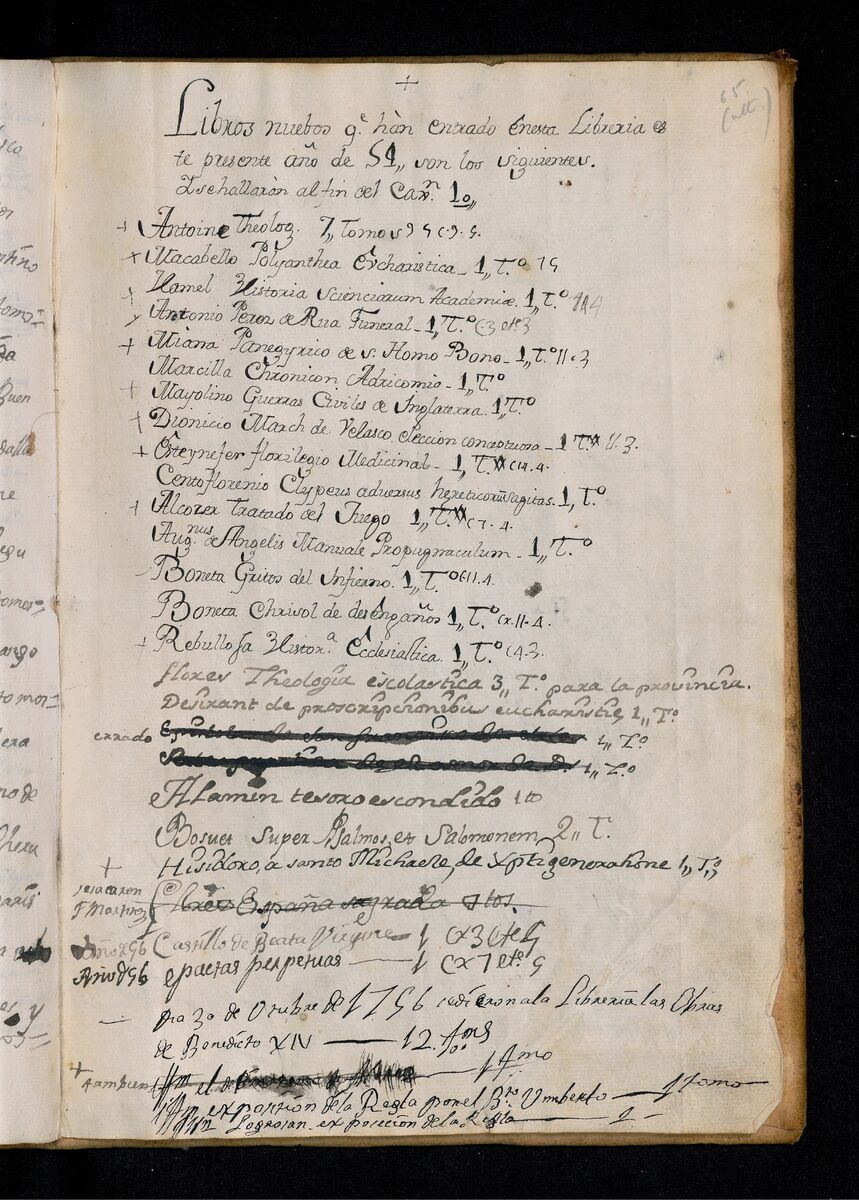 +
65
(ult.)
Libros nuebos q.e hàn entrado ênesta Libreria es
te presente año de 51,, son los siguientes.
Y se hallaràn al fin del Caxn. 1o,,
+ Antoine Theolog. 7,, Tomos
+ Macabello Polyanthea Eucharistica - 1,, T.º
+ Hamel Historia Scienciarum Academiæ. 1,, T.º
Antonio Perez de Rua Funeral - 1,, T.º
+ Miana Panegyrico de S. Homo Bono - 1,, T.º 11.3
Marcilla Chronicon Adricomio - 1,, T.º
+ Mayolino Guerras Civiles de Inglaterra. 1,, T.º
+ Dionicio March de Velasco, eleccion conceptuosa - 1 T
+ Esteynefer florilegio Medicinal - 1,, T
Centoflorenio Clypeus adversus hereticorũ sagitas. 1,, T.º
+ Alcozer tratado del Juego 1,, T c7.4.
Aug.nus de Angelis Manuale Propugnaculum - 1,, T.º
Boneta Gritos del Infierno. 1,, T.º c11.4.
Boneta Chrisol de desêngaños 1,, T.º cx.11.4.
+ Rebullosa Histor.a Êcclesiastica. 1,, T.º c4.3.
flores Theologia escolastica 3,, T.º para la provincia.
Desirant de proscripthionibus eucharistię 1,, T.º
errado 1,, T.º
1,, T.º
Alamin tesoro escondido 1 to
Bosuet super Psalmos, et Salomonem, 2,, T.
+ Hisidoro, a santo Michaele, de Xpti generatione 1,, T.
se sacaron
F Martinez Florez España sagrada tos.
Año d 56 Castillo de Beata Virgine - 1 cx3 ete 5
Año d 56 epactas perpetuas — 1 cx7 ete 5
— Dia 30 de Otubre de 1756 se dieron a la Libreria las Obras
de Benedicto XIV — 12. tomos
+ tambien 1 tomo
exposision de la Regla por el Bto. Umberto — 1 tomo
Logrosan. exposicion de la Regla — 1 -